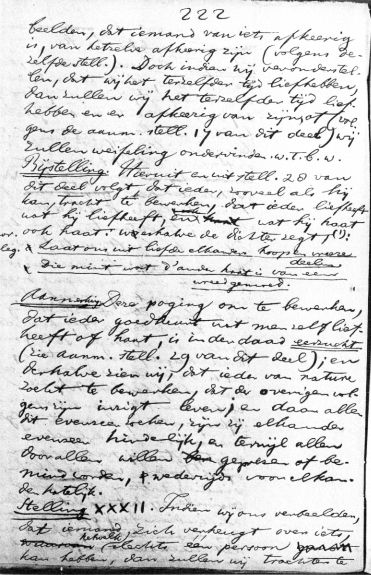 222
beelden, dat iemand van iets afkeerig
is, van hetzelve afkeerig zijn (volgens de-
zelfde stell.). Doch indien wij veronderstel-
len, dat wij het terzelfder tijd liefhebben,
dan zullen wij het terzelfder tijd lief-
hebben en er afkeerig van zijn, of (vol-
gens de aanm. stell. 17 van dit deel) wij
zullen weifeling ondervinden. w.t.b.w.
Bijstelling. Hieruit en uit stell. 28 van
dit deel volgt, dat ieder, zooveel als hij
kan, tracht te bewerken, dat ieder liefheeft
wat hij liefheeft, en wat hij haat
ook haat: weshalve de dichter zegt (1):
Laat ons uit liefde elkander hoopen vreeze
deelen
Die mint wat d'ander haat is van een
wreed gemoed.
Aanmerking Deze poging om te bewerken,
dat ieder goedkeurt wat men zelf lief-
heeft of haat, is inderdaad eerzucht
(zie aanm. stell. 29 van dit deel); en
derhalve zien wij, dat ieder van nature
zoekt te bewerken, dat de overigen vol-
gens zijn inzigt leven; en daar allen
dit evenzeer zoeken, zijn zij elkander
evenzeer hinderlijk, en terwijl allen
door allen willen geprezen of be-
mind worden, wederzijds voor elkan-
der hatelijk.
Stelling XXXII. Indien wij ons verbeelden,
dat iemand zich verheugt over iets,
hetwelk slechts één persoon
kan hebben, dan zullen wij trachten te